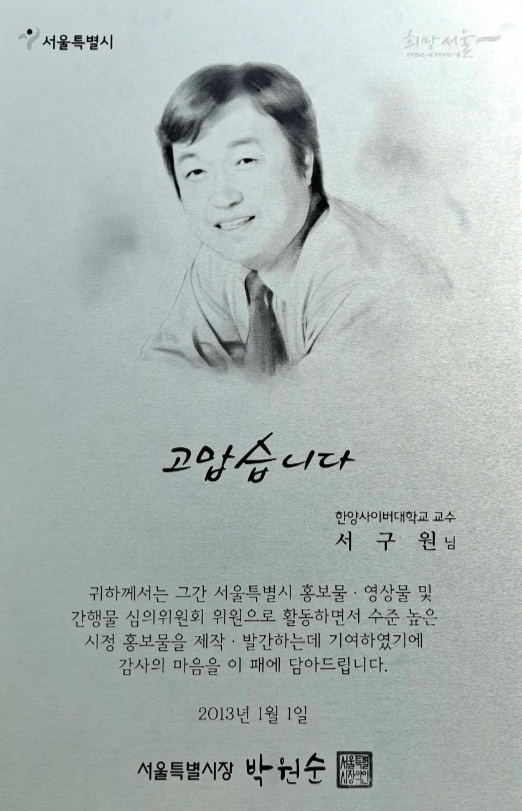 서울특별시
희망서울
고맙습니다
한양사이버대학교 교수
서 구 원 님
귀하께서는 그간 서울특별시 홍보물 · 영상물 및
간행물 심의위원회 위원으로 활동하면서 수준 높은
시정 홍보물을 제작 · 발간하는데 기여하였기에
감사의 마음을 이 패에 담아드립니다.
2013년 1월 1일
서울특별시장 박원순
서울특별
시장의인